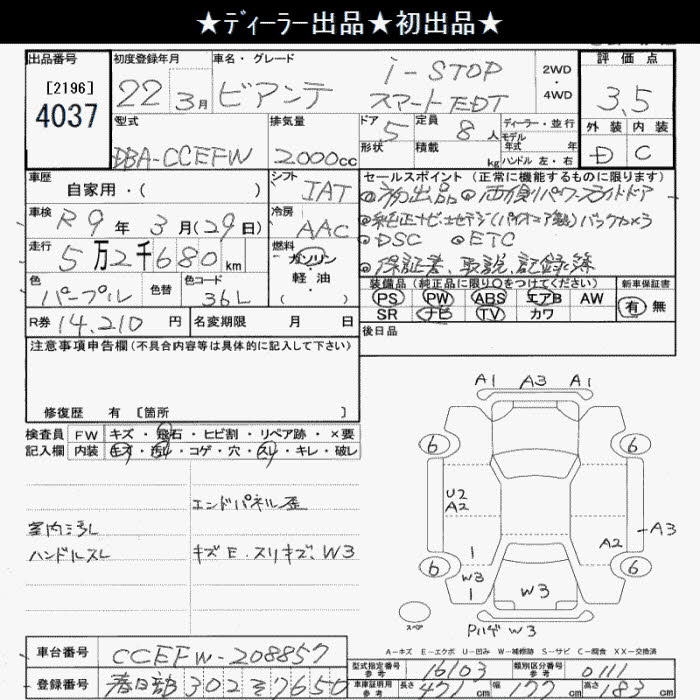 ★ディーラー出品★初出品★
出品番号 初度登録年月 車名・グレード 評価点
[2196]
4037
22 3月 ビアンテ i-STOP スマートEDT 2WD・4WD 3.5
型式 排気量 ドア 5 定員 8人 ディーラー・並行 外装 内装
モデル年式 年
DBA-CCEFW 2000cc 形状 積載 kg ハンドル 左・右 D C
車歴 シフト セールスポイント (正常に機能するものに限ります)
自家用・( ) IAT ◎初出品 ◎両側パワースライドドア
車検 R9年 3月(29日) 冷房 AAC ◎純正ナビ・地デジ(パイオニア製)バックカメラ
走行 5万2千680km 燃料 ガソリン・軽油・( ) ◎DSC ◎ETC
◎保証書、取説、記録簿
色 色替 色コード 装備品 (純正品に限り○をつけてください) 新車保証書
パープル 36L PS PW ABS エアB AW 有・無
R券 14,210円 名変期限 月 日 SR ナビ TV カワ
注意事項申告欄(不具合内容等は具体的に記入して下さい) 後日品
修復歴 有 [箇所 ]
検査員 FW キズ・飛石・ヒビ割・リペア跡・×要
記入欄 内装 キズ・汚れ・コゲ・穴・スレ・キレ・破レ
エンドパネル歪
室内ヨゴレ
ハンドルスレ キズE・スリキズ、W3
A1 A3 A1
6 6
U2
A2
A3
A2
1
6 6
W3
1
W3
スペア Pハゲ W3
A-キズ E-エクボ U-凹み W-補修跡 S-サビ C-腐食 XX-交換済
車台番号 CCEFW-208857 型式指定番号 参考 16103 類別区分番号 参考 0111
登録番号 春日部 302 そ 7650 車庫証明用 参考 長さ 471cm 幅 177cm 高さ 183cm